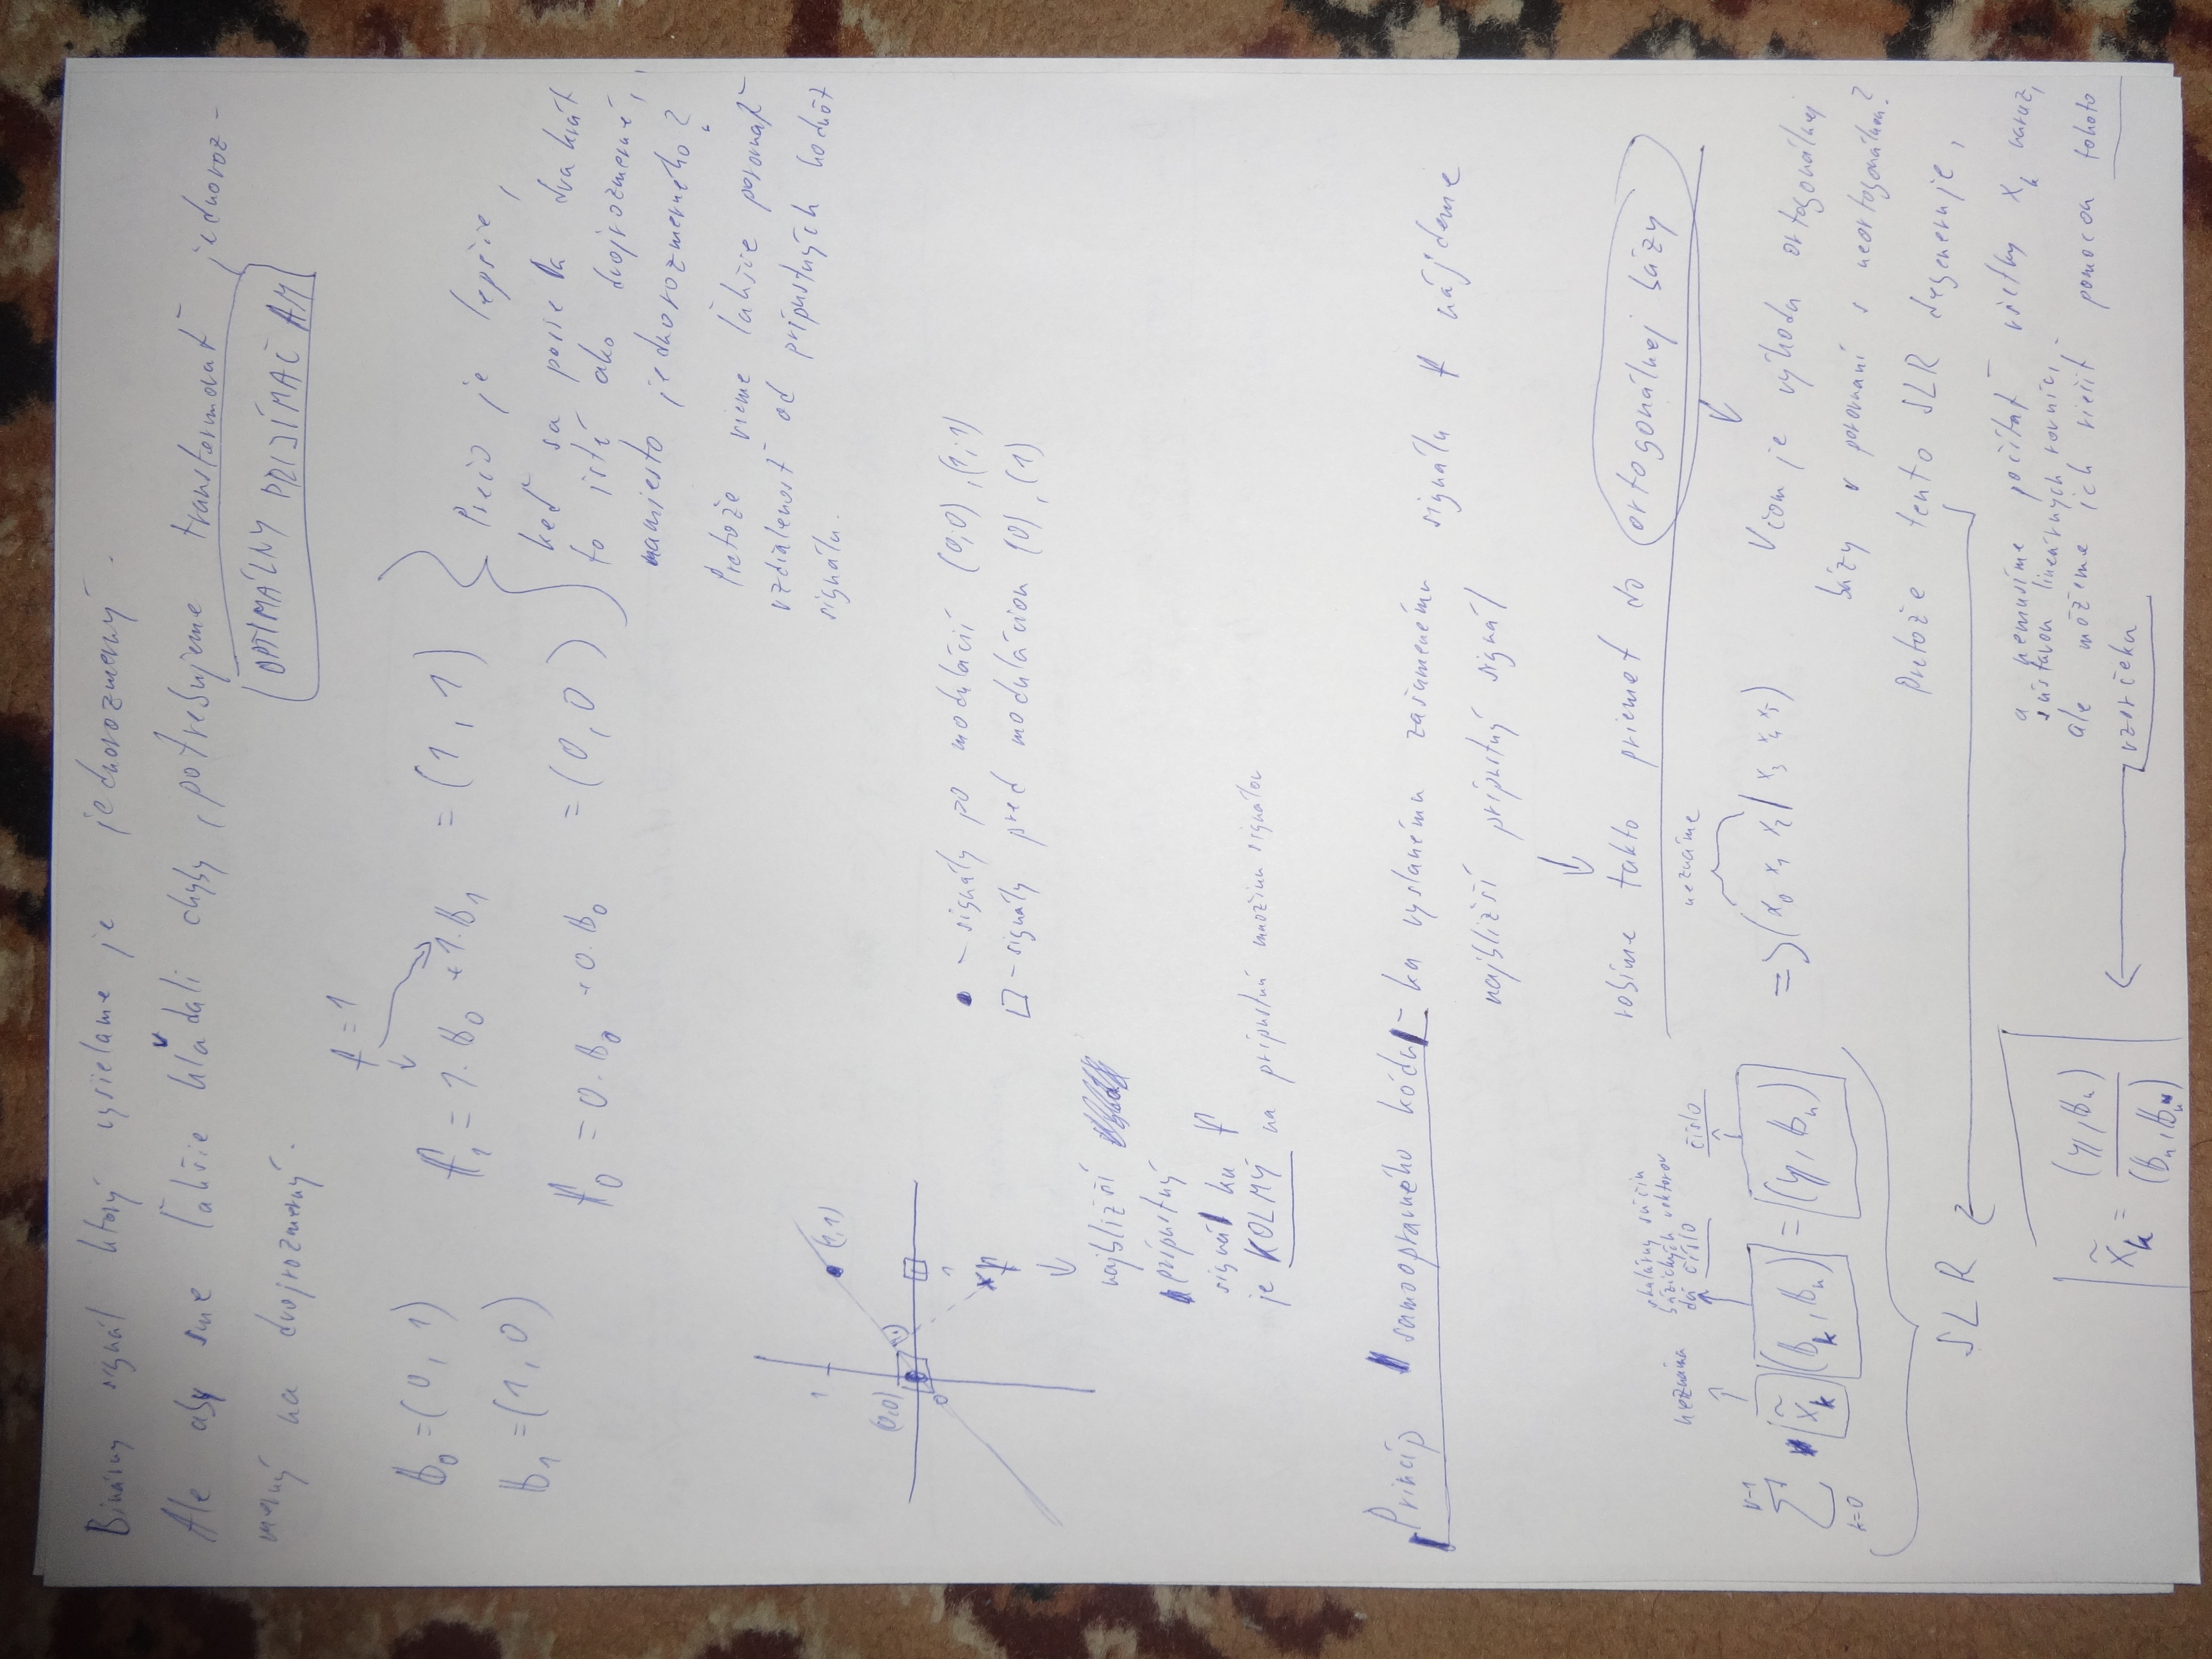 Binárny signál ktorý vysielame je jednorozmerný.
Ale aby sme ľahšie hľadali chyby, potrebujeme transformovať jednoroz-
merný na dvojrozmerný.
OPTIMÁLNY PRIJÍMAČ AM
f = 1
b₀ = (0, 1)
f₁ = 1·b₀ + 1·b₁ = (1, 1)
b₁ = (1, 0)
f₀ = 0·b₀ + 0·b₀ = (0, 0)
Prečo je lepšie,
keď sa posiela dva krát
to isté ako dvojrozmerné,
namiesto jednorozmerného?
Pretože vieme ľahšie porovnať
vzdialenosť od prípustných hodnôt
signálu.
1
(1,1)
(0,0)
0
1
f
● – signály po modulácií (0;0), (1;1)
□ – signály pred moduláciou (0), (1)
najbližší
prípustný
signál ku f
je KOLMÝ na prípustnú množinu signálov
Princíp samoopravného kódu – ku vyslanému zašumenému signálu f nájdeme
najbližší prípustný signál
robíme takto priemet do ortogonálnej bázy
neznáma
skalárny súčin
bázických vektorov
dá číslo
číslo
neznáme
∑ₖ₌₀ᴺ⁻¹ x̃ₖ (bₖ, bₙ) = (y, bₙ) => (x₀ x₁ x₂ | x₃ x₄ x₅)
SLR
V čom je výhoda ortogonálnej
bázy v porovnaní s neortogonálnou?
Pretože tento SLR degeneruje,
a nemusíme počítať všetky xₖ naraz,
sústavou lineárnych rovníc,
ale môžeme ich riešiť pomocou tohoto
vzorčeku
x̃ₖ = (y, bₙ) / (bₙ, bₙ)